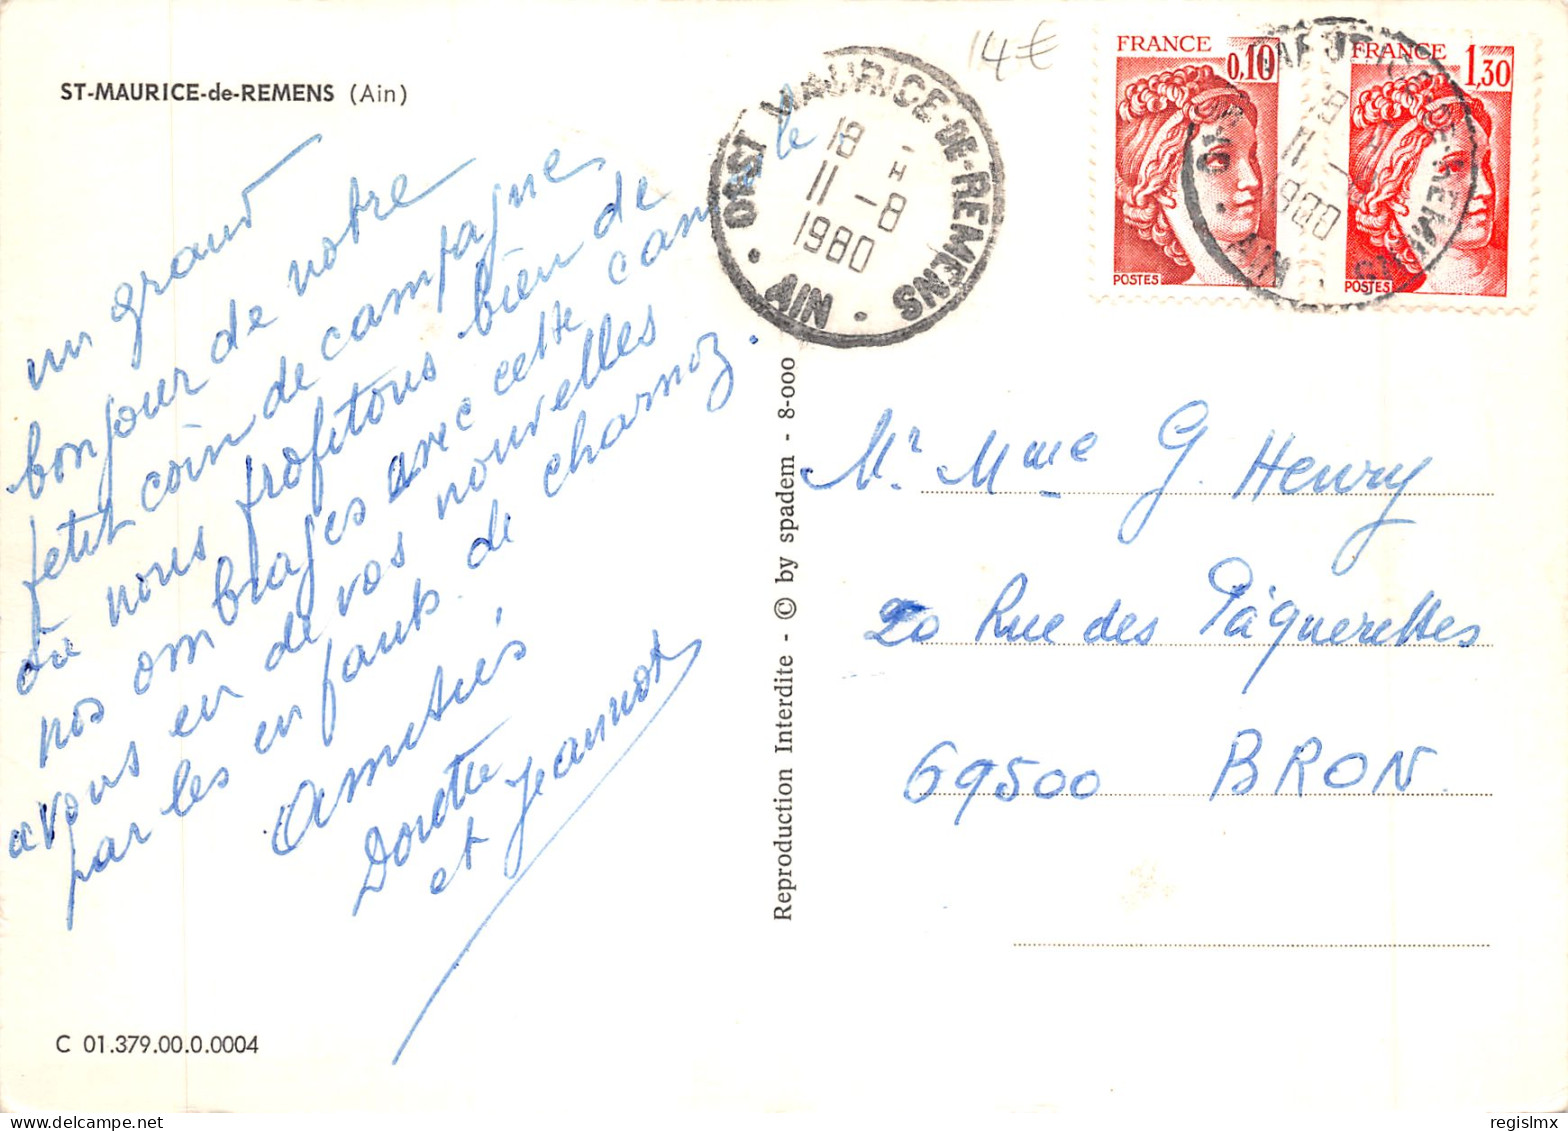 ST-MAURICE-de-REMENS (Ain)
un grand
bonjour de notre
petit coin de campagne
où nous profitons bien de
nos ombrages avec cette canicule
avous en de vos nouvelles
par les enfants de charnoz.
Amitiés
Dorette
et Jeannot
C 01.379.00.0.0004
Reproduction Interdite - © by spadem - 8-000
14€
01 ST MAURICE-DE-REMENS
18 H
11 -8
1980
AIN
FRANCE
0,10
POSTES
FRANCE
1,30
POSTES
Mr Mme G. Henry
20 Rue des Pâquerettes
69500 BRON
regislmx